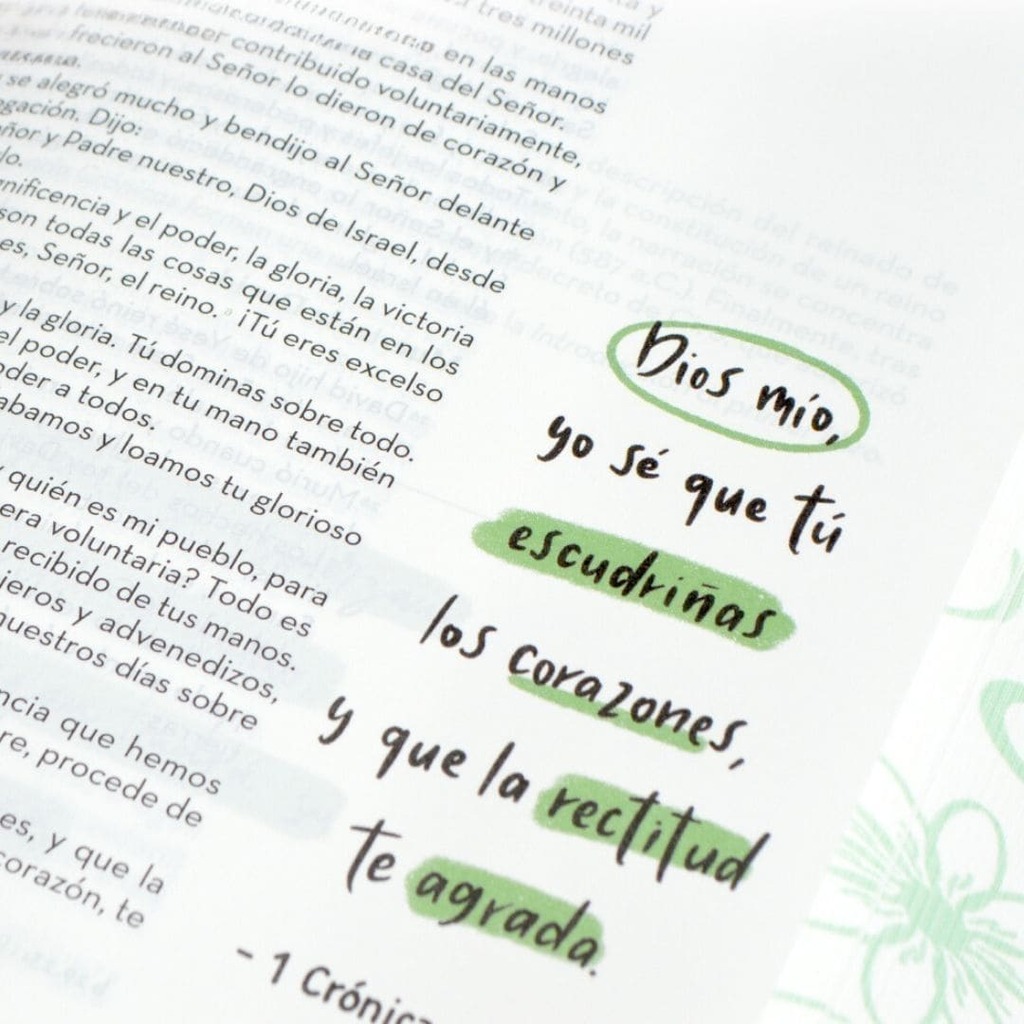 treinta mil
tres millones
en las manos
la casa del Señor.
contribuido voluntariamente,
frecieron al Señor lo dieron de corazón y
se alegró mucho y bendijo al Señor delante
gación. Dijo:
ñor y Padre nuestro, Dios de Israel, desde
lo.
gnificencia y el poder, la gloria, la victoria
son todas las cosas que están en los
es, Señor, el reino. ¡Tú eres excelso
y la gloria. Tú dominas sobre todo.
el poder, y en tu mano también
oder a todos.
abamos y loamos tu glorioso
quién es mi pueblo, para
era voluntaria? Todo es
recibido de tus manos.
jeros y advenedizos,
nuestros días sobre
ncia que hemos
re, procede de
es, y que la
corazón, te
Dios mío,
yo sé que tú
escudriñas
los corazones,
y que la rectitud
te agrada.
- 1 Crónic